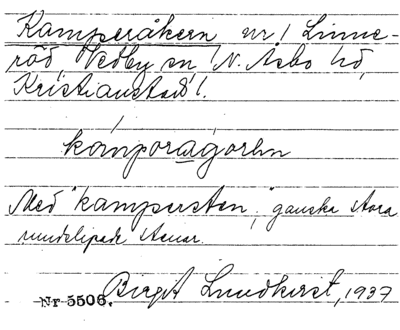 Kamperåkern nr 1 Linne-
röd, Vedby sn, N. Åsbo hd,
Kristianstad l.
kámporågorhn
Med "kampersten", ganska stora
rundslipade stenar.
Nr 5506. Birgit Lundkvist, 1937